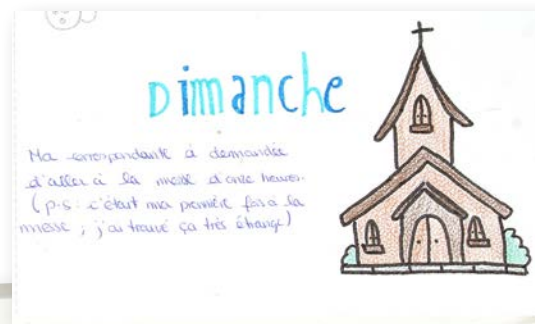 Dimanche
Ma correspondante à demandée
d'aller à la messe d'onze heures.
(p-s: c'était ma première fois à la
messe ; j'ai trouvé ça très étrange)